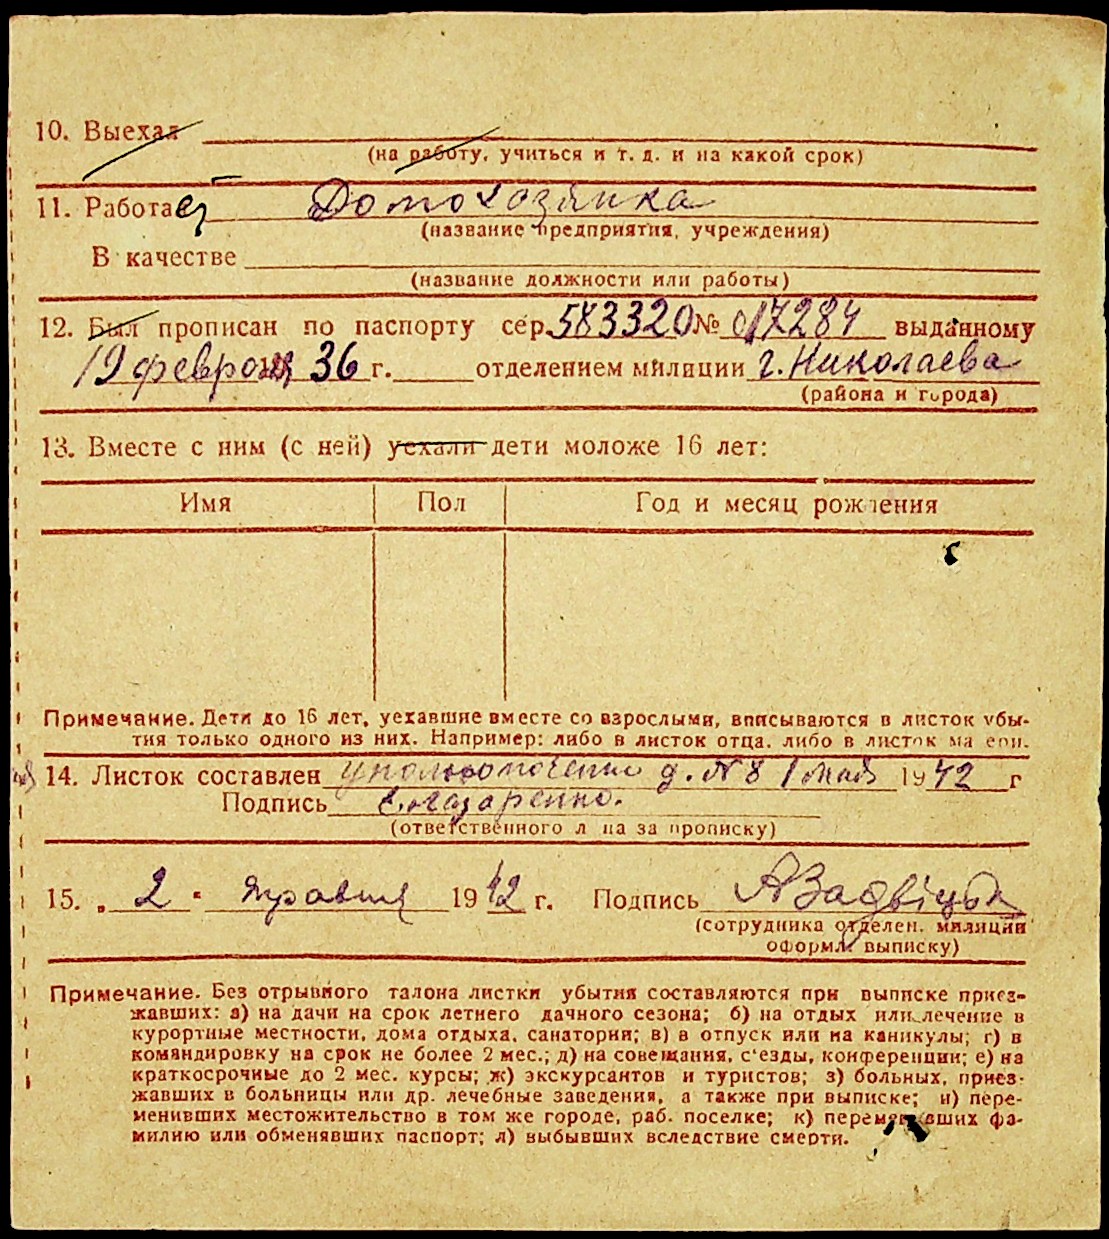 10. Выехал
(на работу, учиться и т. д. и на какой срок)
11. Работает Домохозяйка
(название предприятия, учреждения)
В качестве
(название должности или работы)
12. Был прописан по паспорту сер. 583320 № 017284 выданному
19 февраля 36 г. отделением милиции г. Николаева
(района и города)
13. Вместе с ним (с ней) уехали дети моложе 16 лет:
Имя Пол Год и месяц рождения
Примечание. Дети до 16 лет, уехавшие вместе со взрослыми, вписываются в листок убы-
тия только одного из них. Например: либо в листок отца, либо в листок ма ери.
14. Листок составлен д. №8 1 мая 1942 г
Подпись
(ответственного л ца за прописку)
15. „ 2 " травня 1942 г. Подпись
(сотрудника отделен. милиции
оформл. выписку)
Примечание. Без отрывного талона листки убытия составляются при выписке приез-
жавших: а) на дачи на срок летнего дачного сезона; б) на отдых или лечение в
курортные местности, дома отдыха, санатории; в) в отпуск или на каникулы; г) в
командировку на срок не более 2 мес.; д) на совещания, с'езды, конференции; е) на
краткосрочные до 2 мес. курсы; ж) экскурсантов и туристов; з) больных, приез-
жавших в больницы или др. лечебные заведения, а также при выписке; и) пере-
менивших местожительство в том же городе, раб. поселке; к) переменивших фа-
милию или обменявших паспорт; л) выбывших вследствие смерти.